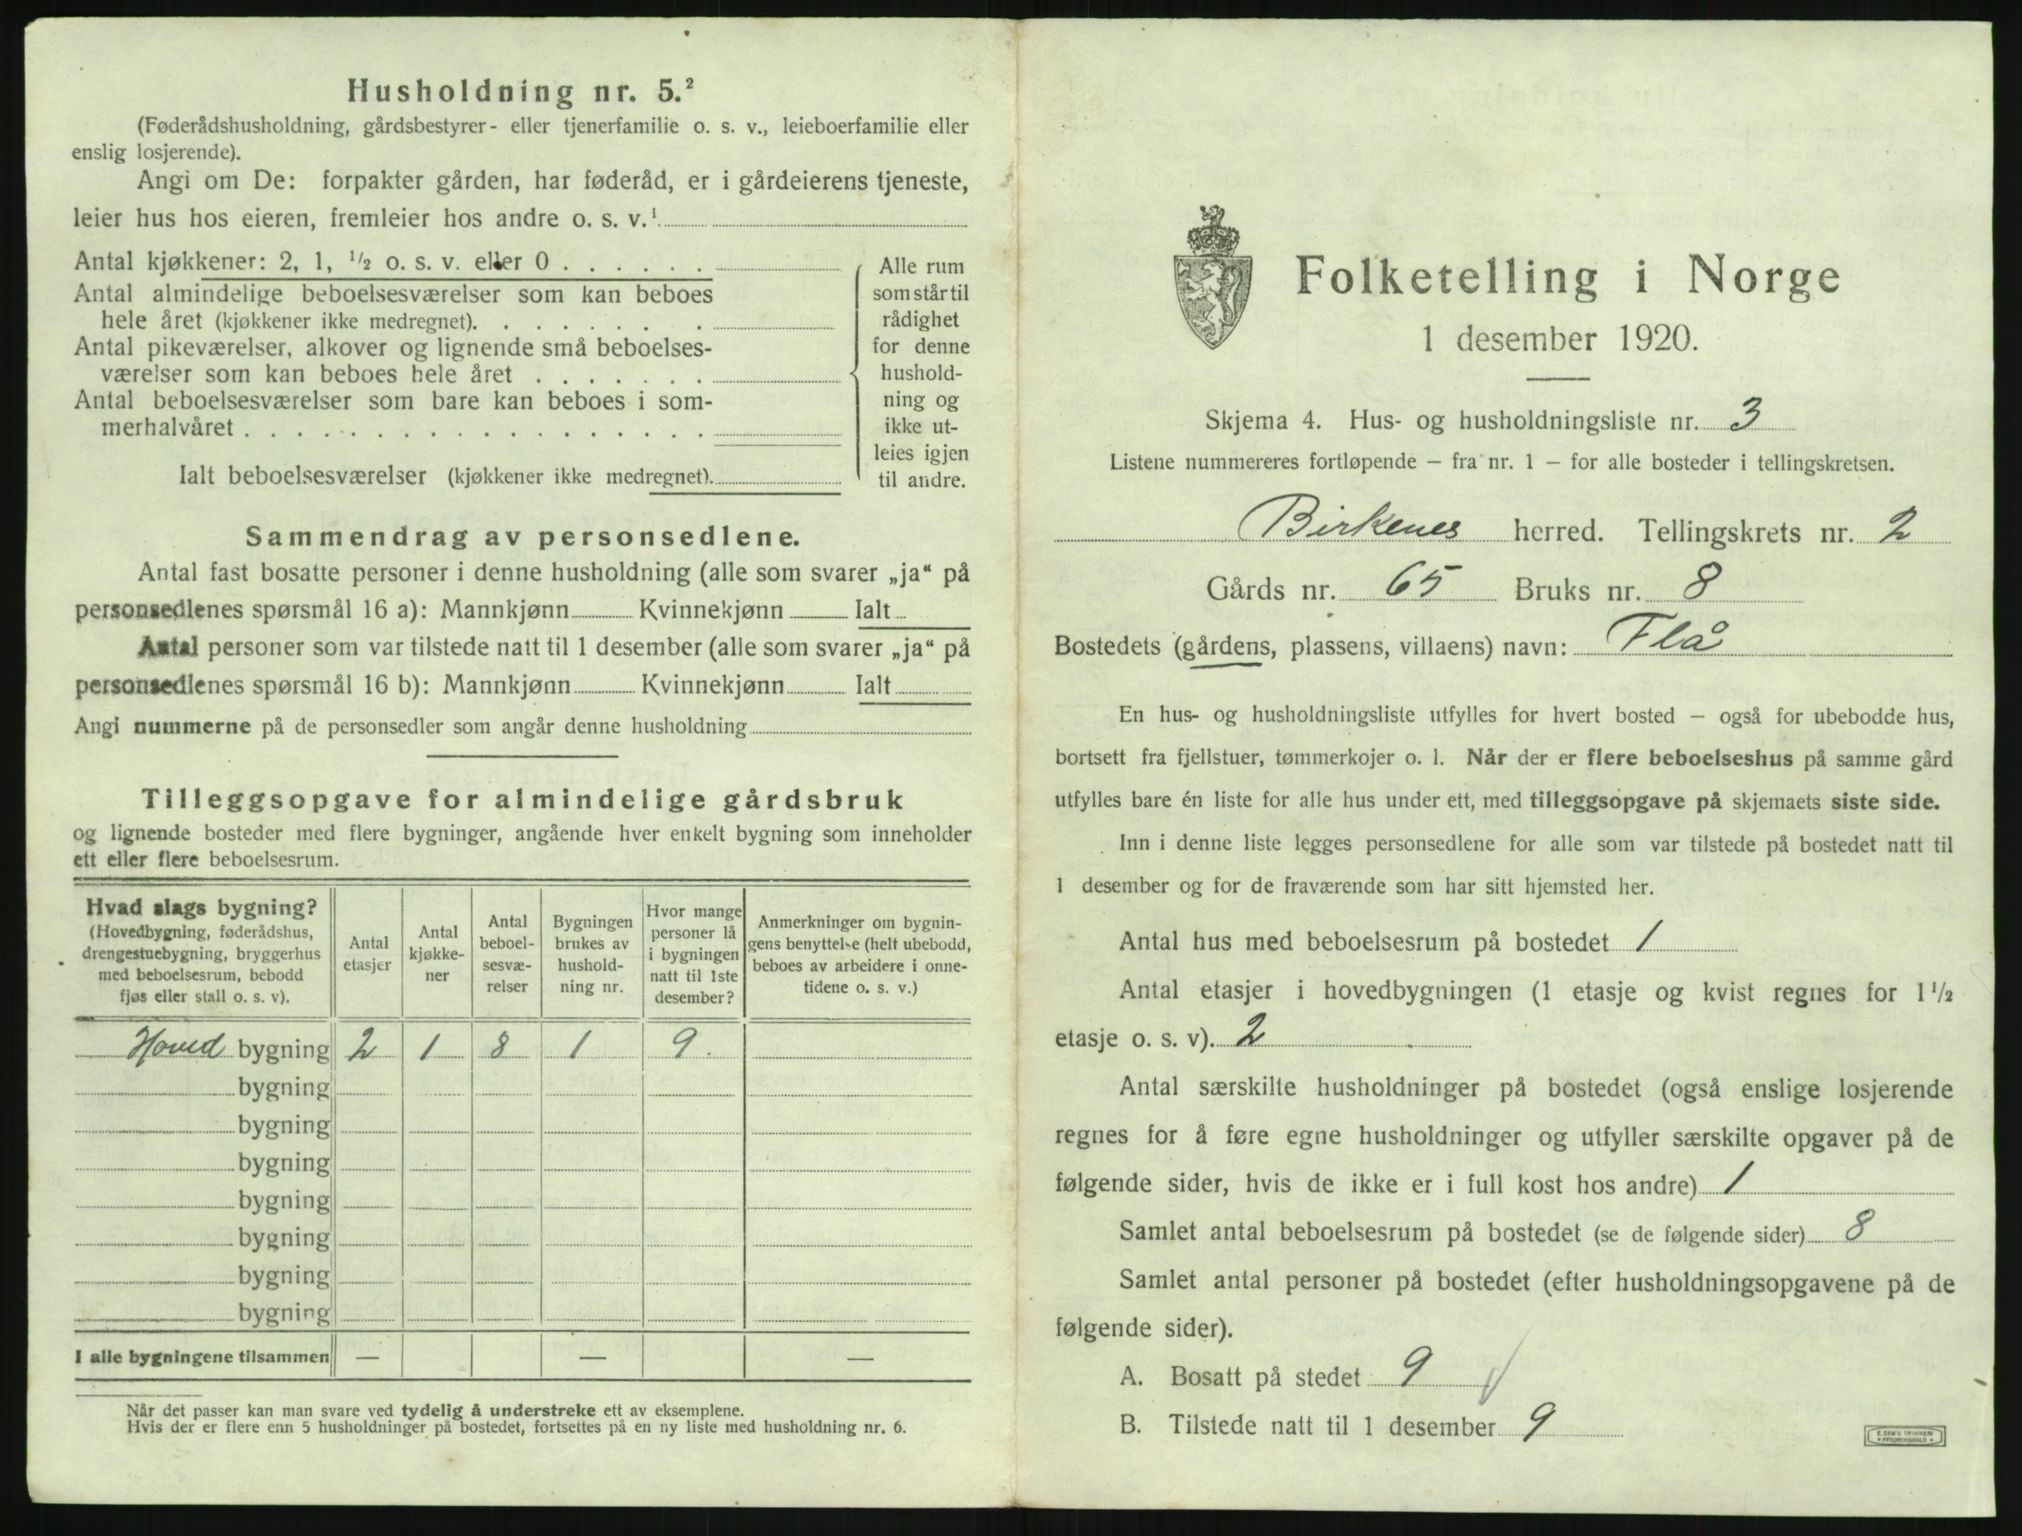 Husholdning nr. 5.²
(Føderådshusholdning, gårdsbestyrer- eller tjenerfamilie o. s. v., leieboerfamilie eller
enslig losjerende).
Angi om De: forpakter gården, har føderåd, er i gårdeierens tjeneste,
leier hus hos eieren, fremleier hos andre o. s. v.¹
Antal kjøkkener: 2, 1, ½ o. s. v. eller 0 . . . . . .
Antal almindelige beboelsesværelser som kan beboes
hele året (kjøkkener ikke medregnet). . . . . . . .
Antal pikeværelser, alkover og lignende små beboelses-
værelser som kan beboes hele året . . . . . . .
Antal beboelsesværelser som bare kan beboes i som-
merhalvåret . . . . . . . . . . . . . . . . . .
Ialt beboelsesværelser (kjøkkener ikke medregnet).
Alle rum
som står til
rådighet
for denne
hushold-
ning og
ikke ut-
leies igjen
til andre.
Sammendrag av personsedlene.
Antal fast bosatte personer i denne husholdning (alle som svarer „ja“ på
personsedlenes spørsmål 16 a): Mannkjønn Kvinnekjønn Ialt
Antal personer som var tilstede natt til 1 desember (alle som svarer „ja“ på
personsedlenes spørsmål 16 b): Mannkjønn Kvinnekjønn Ialt
Angi nummerne på de personsedler som angår denne husholdning
Tilleggsopgave for almindelige gårdsbruk
og lignende bosteder med flere bygninger, angående hver enkelt bygning som inneholder
ett eller flere beboelsesrum.
Hvad slags bygning?
(Hovedbygning, føderådshus,
drengestuebygning, bryggerhus
med beboelsesrum, bebodd
fjøs eller stall o. s. v).
Antal
etasjer
Antal
kjøkke-
ner
Antal
beboel-
sesvæ-
relser
Bygningen
brukes av
hushold-
ning nr.
Hvor mange
personer lå
i bygningen
natt til 1ste
desember?
Anmerkninger om bygnin-
gens benyttelse (helt ubebodd,
beboes av arbeidere i onne-
tidene o. s. v.)
Hoved bygning 2 1 8 1 9.
bygning
bygning
bygning
bygning
bygning
bygning
bygning
I alle bygningene tilsammen — — —
Når det passer kan man svare ved tydelig å understreke ett av eksemplene.
Hvis der er flere enn 5 husholdninger på bostedet, fortsettes på en ny liste med husholdning nr. 6.
Folketelling i Norge
1 desember 1920.
Skjema 4. Hus- og husholdningsliste nr. 3
Listene nummereres fortløpende — fra nr. 1 — for alle bosteder i tellingskretsen.
Birkenes herred. Tellingskrets nr. 2
Gårds nr. 65 Bruks nr. 8
Bostedets (gårdens, plassens, villaens) navn: Flå
En hus- og husholdningsliste utfylles for hvert bosted — også for ubebodde hus,
bortsett fra fjellstuer, tømmerkojer o. l. Når der er flere beboelseshus på samme gård
utfylles bare én liste for alle hus under ett, med tilleggsopgave på skjemaets siste side.
Inn i denne liste legges personsedlene for alle som var tilstede på bostedet natt til
1 desember og for de fraværende som har sitt hjemsted her.
Antal hus med beboelsesrum på bostedet 1
Antal etasjer i hovedbygningen (1 etasje og kvist regnes for 1½
etasje o. s. v). 2
Antal særskilte husholdninger på bostedet (også enslige losjerende
regnes for å føre egne husholdninger og utfyller særskilte opgaver på de
følgende sider, hvis de ikke er i full kost hos andre) 1
Samlet antal beboelsesrum på bostedet (se de følgende sider) 8
Samlet antal personer på bostedet (efter husholdningsopgavene på de
følgende sider).
A. Bosatt på stedet 9
B. Tilstede natt til 1 desember 9
E. SEM'S TRYKKERI
FREDRIKSHALD